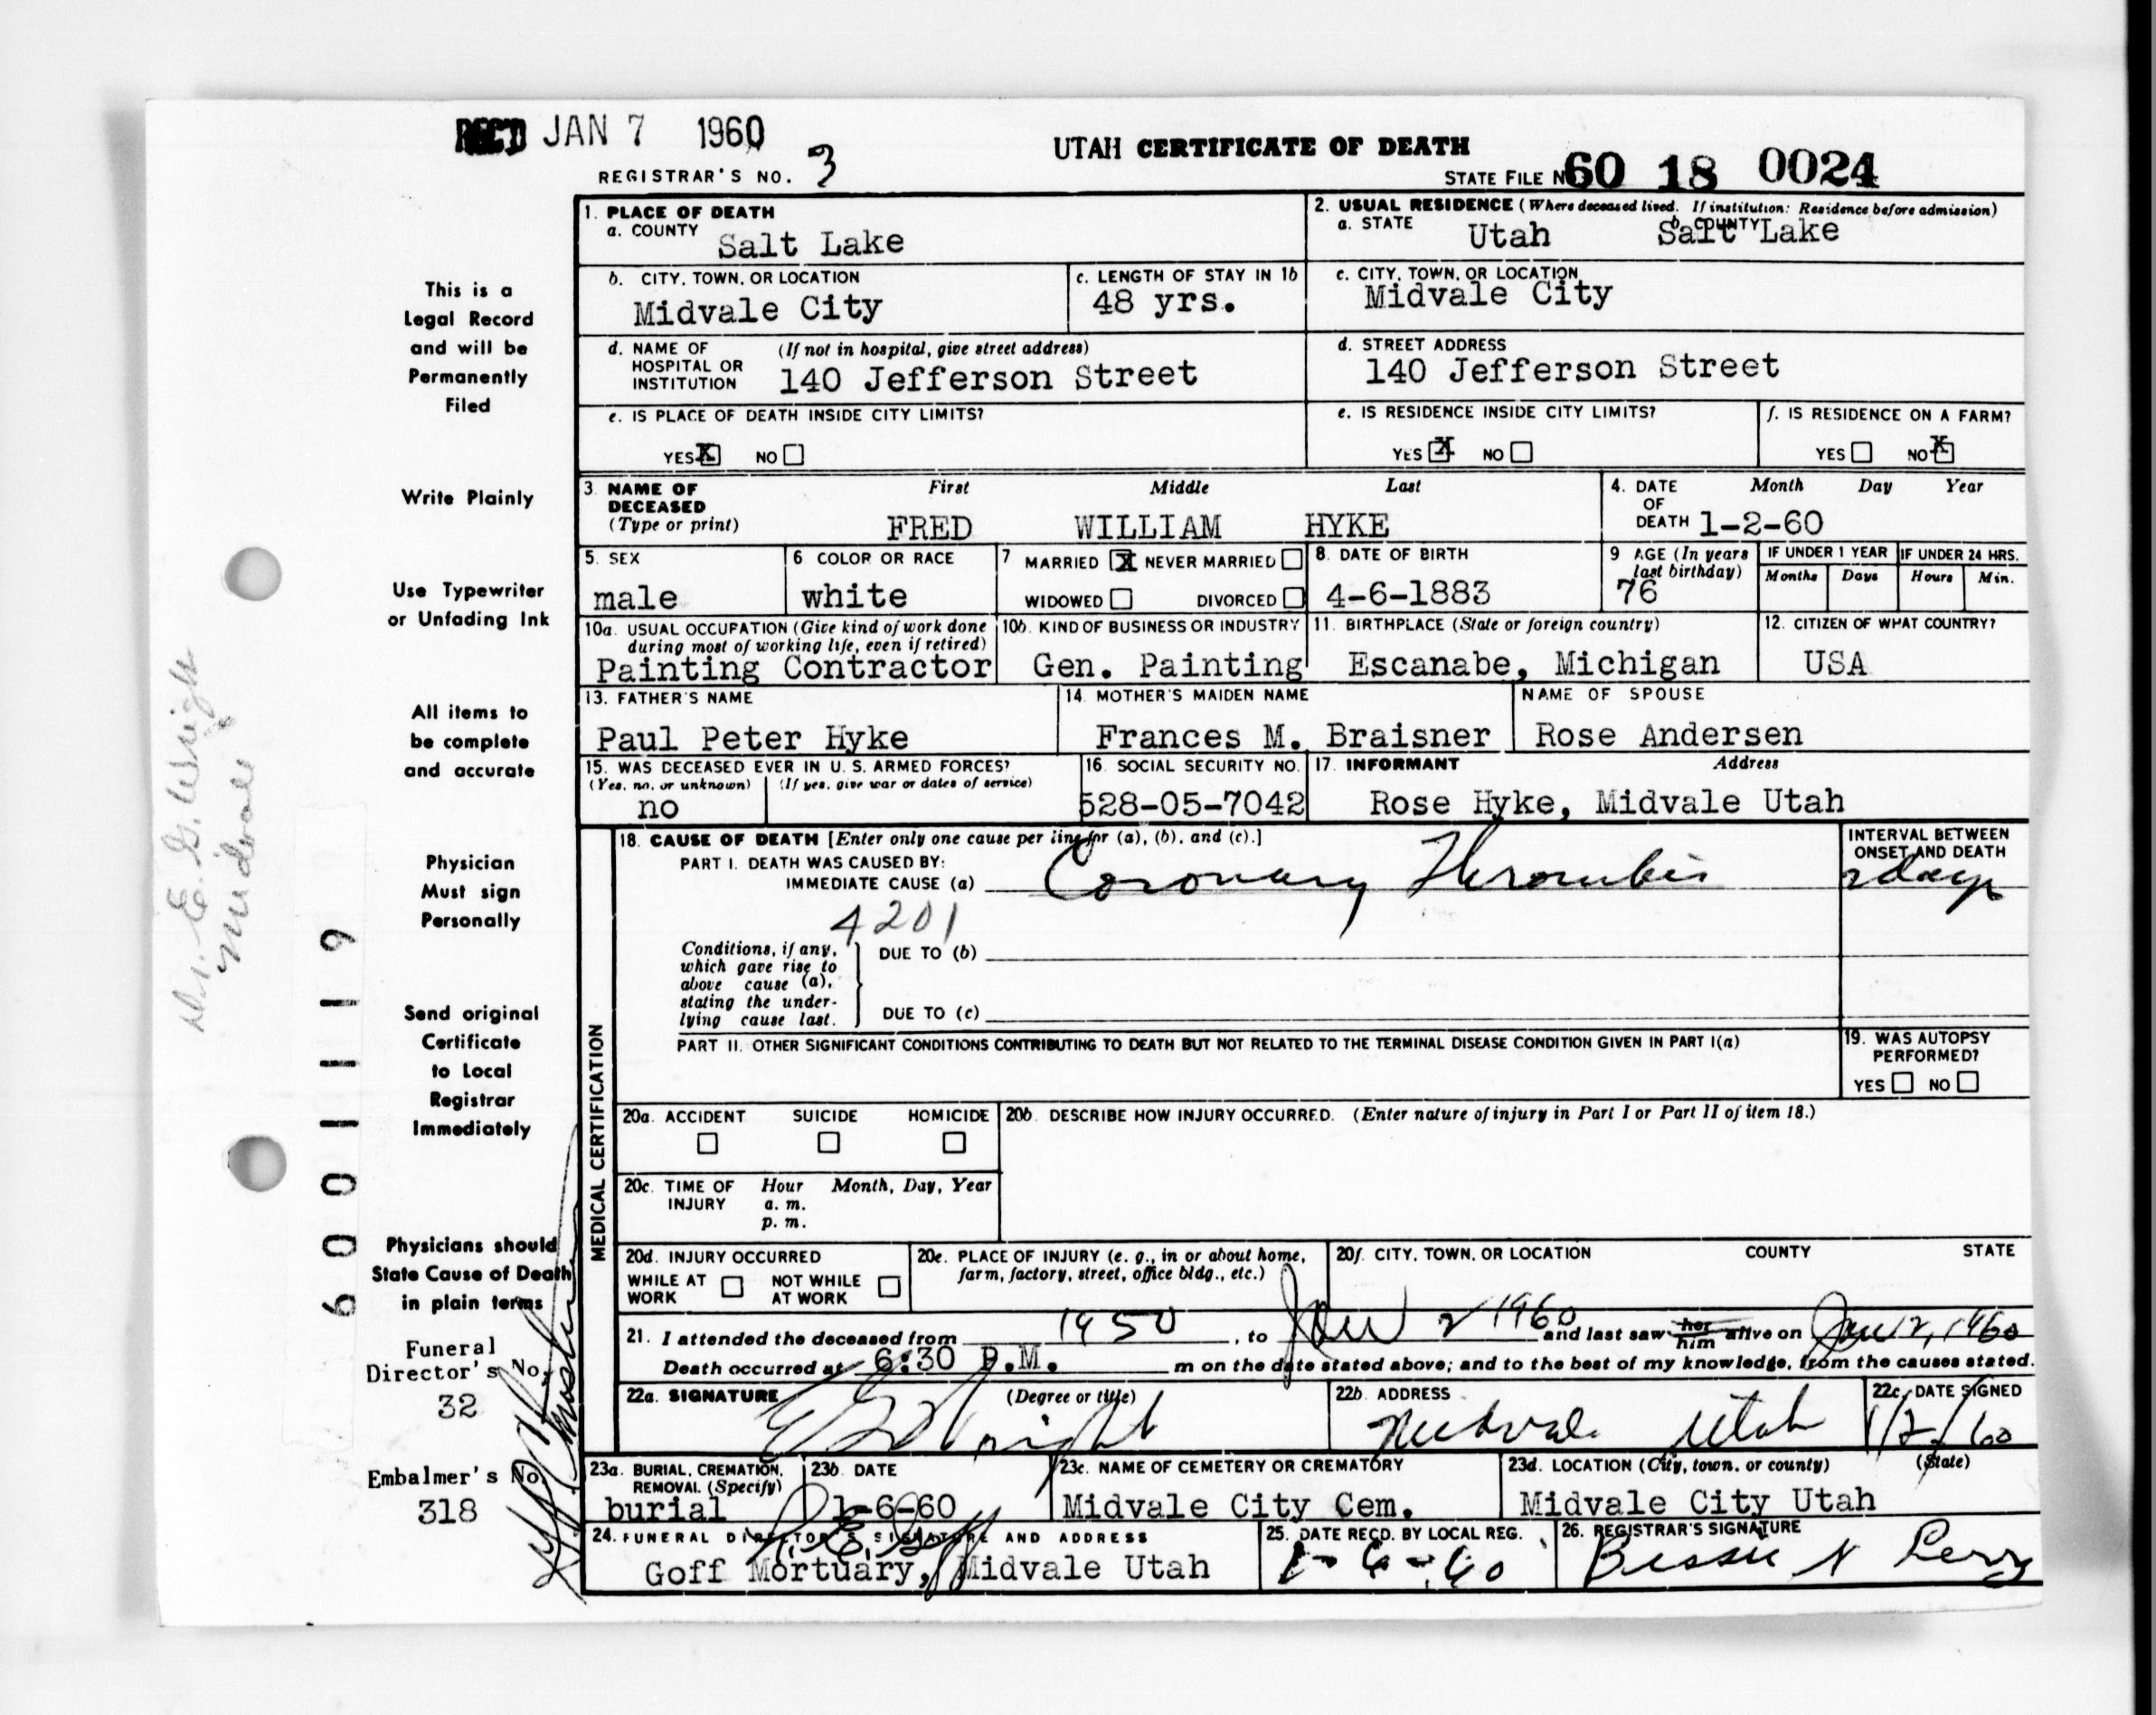 REC'D JAN 7 1960
UTAH CERTIFICATE OF DEATH
REGISTRAR'S NO. 3
STATE FILE No. 60 18 0024
1. PLACE OF DEATH
a. COUNTY Salt Lake
2. USUAL RESIDENCE (Where deceased lived. If institution: Residence before admission)
a. STATE Utah b. COUNTY Salt Lake
b. CITY, TOWN, OR LOCATION
Midvale City
c. LENGTH OF STAY IN 1b
48 yrs.
c. CITY, TOWN, OR LOCATION
Midvale City
d. NAME OF HOSPITAL OR INSTITUTION (If not in hospital, give street address)
140 Jefferson Street
d. STREET ADDRESS
140 Jefferson Street
e. IS PLACE OF DEATH INSIDE CITY LIMITS?
YES X NO
e. IS RESIDENCE INSIDE CITY LIMITS?
YES X NO
f. IS RESIDENCE ON A FARM?
YES NO X
3. NAME OF DECEASED (Type or print) First Middle Last
FRED WILLIAM HYKE
4. DATE OF DEATH Month Day Year
1-2-60
5. SEX
male
6 COLOR OR RACE
white
7 MARRIED X NEVER MARRIED
WIDOWED DIVORCED
8. DATE OF BIRTH
4-6-1883
9 AGE (In years last birthday)
76
IF UNDER 1 YEAR
Months Days
IF UNDER 24 HRS.
Hours Min.
10a. USUAL OCCUPATION (Give kind of work done during most of working life, even if retired)
Painting Contractor
10b. KIND OF BUSINESS OR INDUSTRY
Gen. Painting
11. BIRTHPLACE (State or foreign country)
Escanabe, Michigan
12. CITIZEN OF WHAT COUNTRY?
USA
13. FATHER'S NAME
Paul Peter Hyke
14. MOTHER'S MAIDEN NAME
Frances M. Braisner
NAME OF SPOUSE
Rose Andersen
15. WAS DECEASED EVER IN U. S. ARMED FORCES?
(Yes, no, or unknown) (If yes, give war or dates of service)
no
16. SOCIAL SECURITY NO.
528-05-7042
17. INFORMANT Address
Rose Hyke, Midvale Utah
MEDICAL CERTIFICATION
18. CAUSE OF DEATH [Enter only one cause per line for (a), (b), and (c).]
PART I. DEATH WAS CAUSED BY:
IMMEDIATE CAUSE (a) Coronary Thrombis
INTERVAL BETWEEN ONSET AND DEATH
2 days
4201
Conditions, if any, which gave rise to above cause (a), stating the underlying cause last.
DUE TO (b)
DUE TO (c)
PART II. OTHER SIGNIFICANT CONDITIONS CONTRIBUTING TO DEATH BUT NOT RELATED TO THE TERMINAL DISEASE CONDITION GIVEN IN PART I(a)
19. WAS AUTOPSY PERFORMED?
YES NO
20a. ACCIDENT SUICIDE HOMICIDE
20b. DESCRIBE HOW INJURY OCCURRED. (Enter nature of injury in Part I or Part II of item 18.)
20c. TIME OF INJURY Hour Month, Day, Year
a. m.
p. m.
20d. INJURY OCCURRED
WHILE AT WORK NOT WHILE AT WORK
20e. PLACE OF INJURY (e. g., in or about home, farm, factory, street, office bldg., etc.)
20f. CITY, TOWN, OR LOCATION COUNTY STATE
21. I attended the deceased from 1950, to Jan 2 1960 and last saw her him alive on Jan 2, 1960
Death occurred at 6:30 P.M. m on the date stated above; and to the best of my knowledge, from the causes stated.
22a. SIGNATURE (Degree or title)
E G Wright
22b. ADDRESS
Midvale Utah
22c. DATE SIGNED
1/2/60
23a. BURIAL, CREMATION, REMOVAL (Specify)
burial
23b. DATE
1-6-60
23c. NAME OF CEMETERY OR CREMATORY
Midvale City Cem.
23d. LOCATION (City, town, or county) (State)
Midvale City Utah
24. FUNERAL DIRECTOR'S SIGNATURE AND ADDRESS
R. E. Goff
Goff Mortuary, Midvale Utah
25. DATE RECD. BY LOCAL REG.
1-6-60
26. REGISTRAR'S SIGNATURE
Bessie N
This is a
Legal Record
and will be
Permanently
Filed
Write Plainly
Use Typewriter
or Unfading Ink
All items to
be complete
and accurate
Physician
Must sign
Personally
Send original
Certificate
to Local
Registrar
Immediately
Physicians should
State Cause of Death
in plain terms
Funeral
Director's No.
32
Embalmer's No.
318
Dr. E. G. Wright
Midvale
6001119